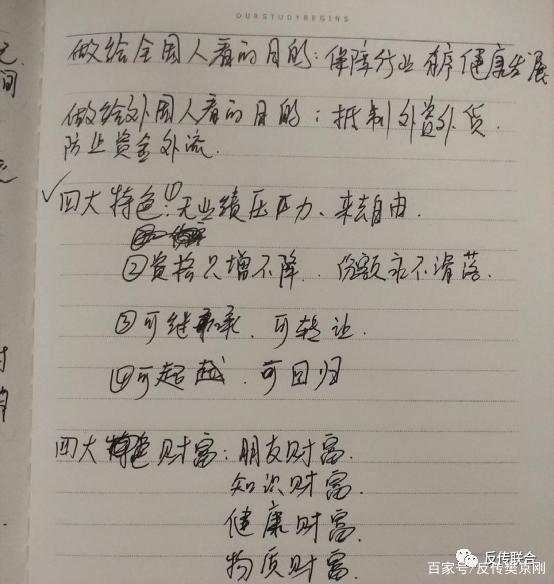 OURSTUDYBEGINS
做给全国人看的目的：保障行业有序健康发展
做给外国人看的目的：抵制外资外货.
防止资金外流.
✓四大特色：①无业绩压力、来去自由.
②资格只增不降. 份额永不滑落.
③可继承、可转让.
④可超越、可回归
四大财富：朋友财富.
知识财富.
健康财富.
物质财富.
反传联合
百家号/反传樊京刚